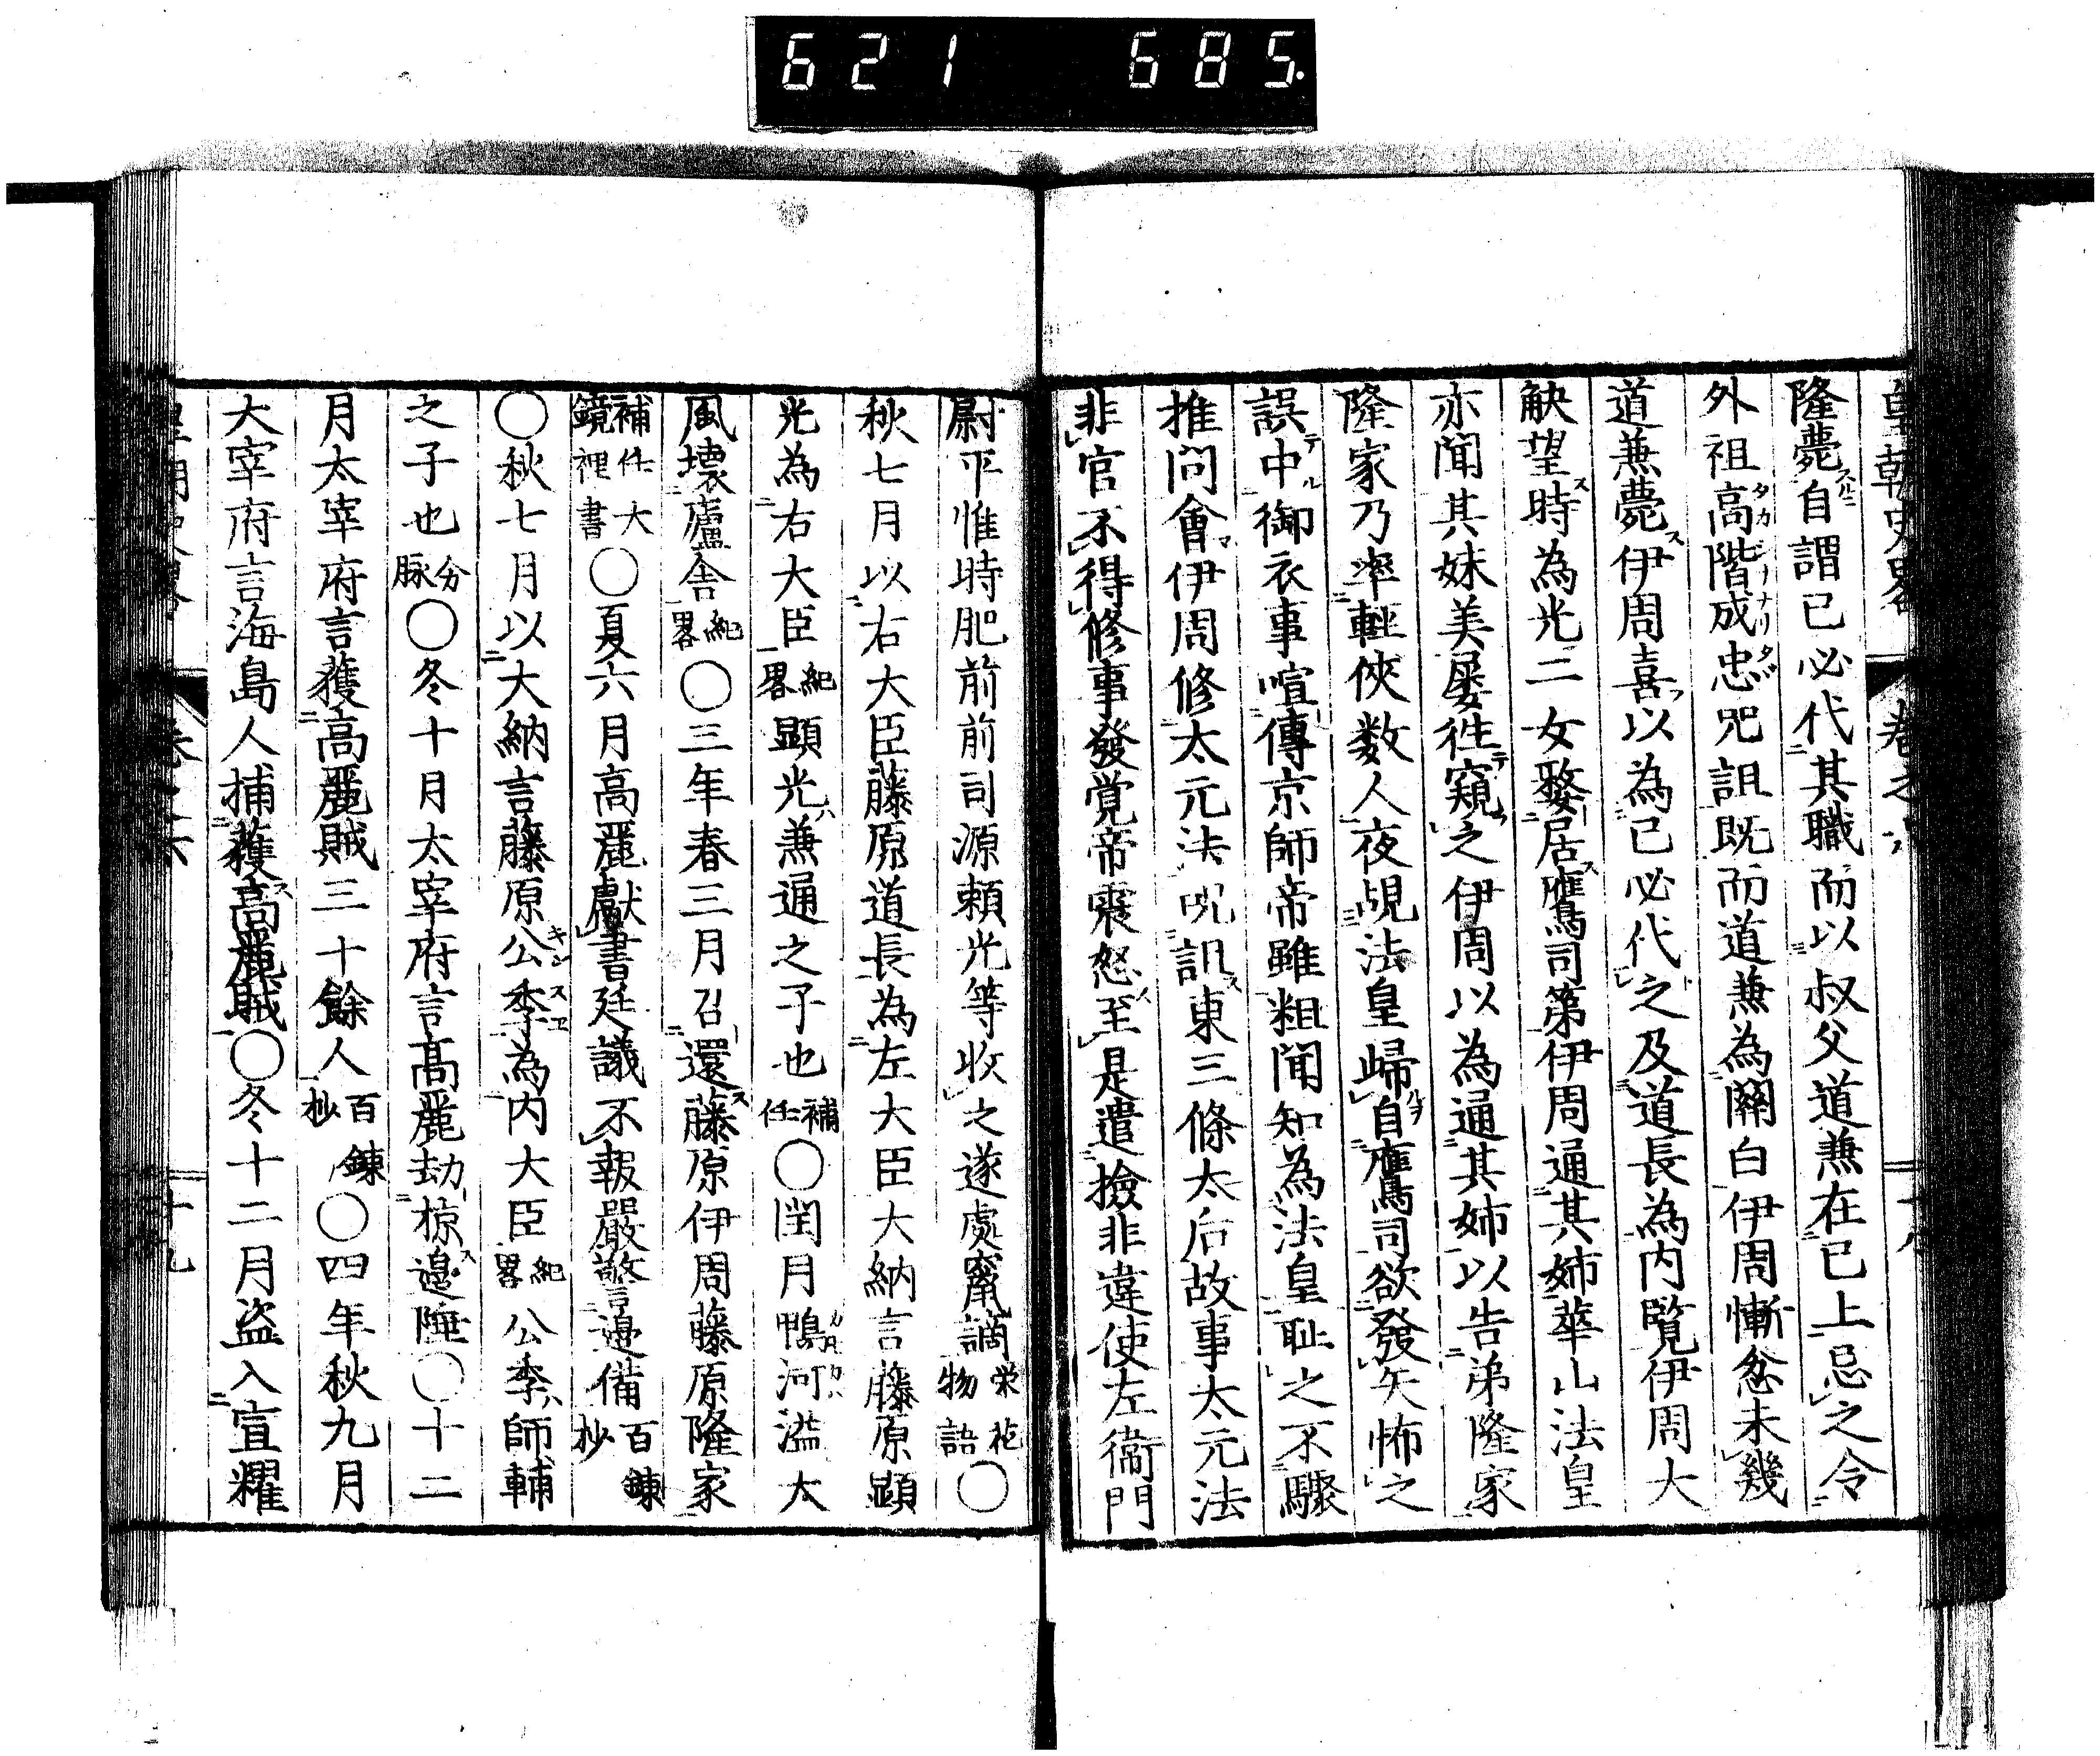 621 685.
皇朝史畧 卷之六 十八
隆薨自謂已必代其職而以叔父道兼在已上忌之令
外祖高階成忠咒詛既而道兼為關白伊周慚忿未幾
道兼薨伊周喜以為已必代之及道長為内覧伊周大
觖望時為光二女嫠居鷹司第伊周通其姉華山法皇
亦聞其妹美屡徃窺之伊周以為通其姉以告弟隆家
隆家乃率輕俠数人夜覘法皇歸自鷹司欲發矢怖之
誤中御衣事喧傳京師帝雖粗聞知為法皇耻之不驟
推問會伊周修太元法呪詛東三條太后故事太元法
非官不得修事發覚帝震怒至是遣撿非違使左衞門
尉平惟時肥前前司源頼光等收之遂處竄謫榮花物語〇
秋七月以右大臣藤原道長為左大臣大納言藤原顕
光為右大臣紀畧顕光兼通之子也補任〇閏月鴨河溢大
風壊廬舎紀畧〇三年春三月召還藤原伊周藤原隆家
補任大鏡裡書〇夏六月高麗獻書廷議不報嚴警邉備百錬抄
〇秋七月以大納言藤原公季為内大臣紀畧公季師輔
之子也分脉〇冬十月太宰府言高麗劫椋邉陲〇十二
月太宰府言獲高麗賊三十餘人百錬抄〇四年秋九月
大宰府言海島人捕獲高麗賊〇冬十二月盗入宣耀
十九